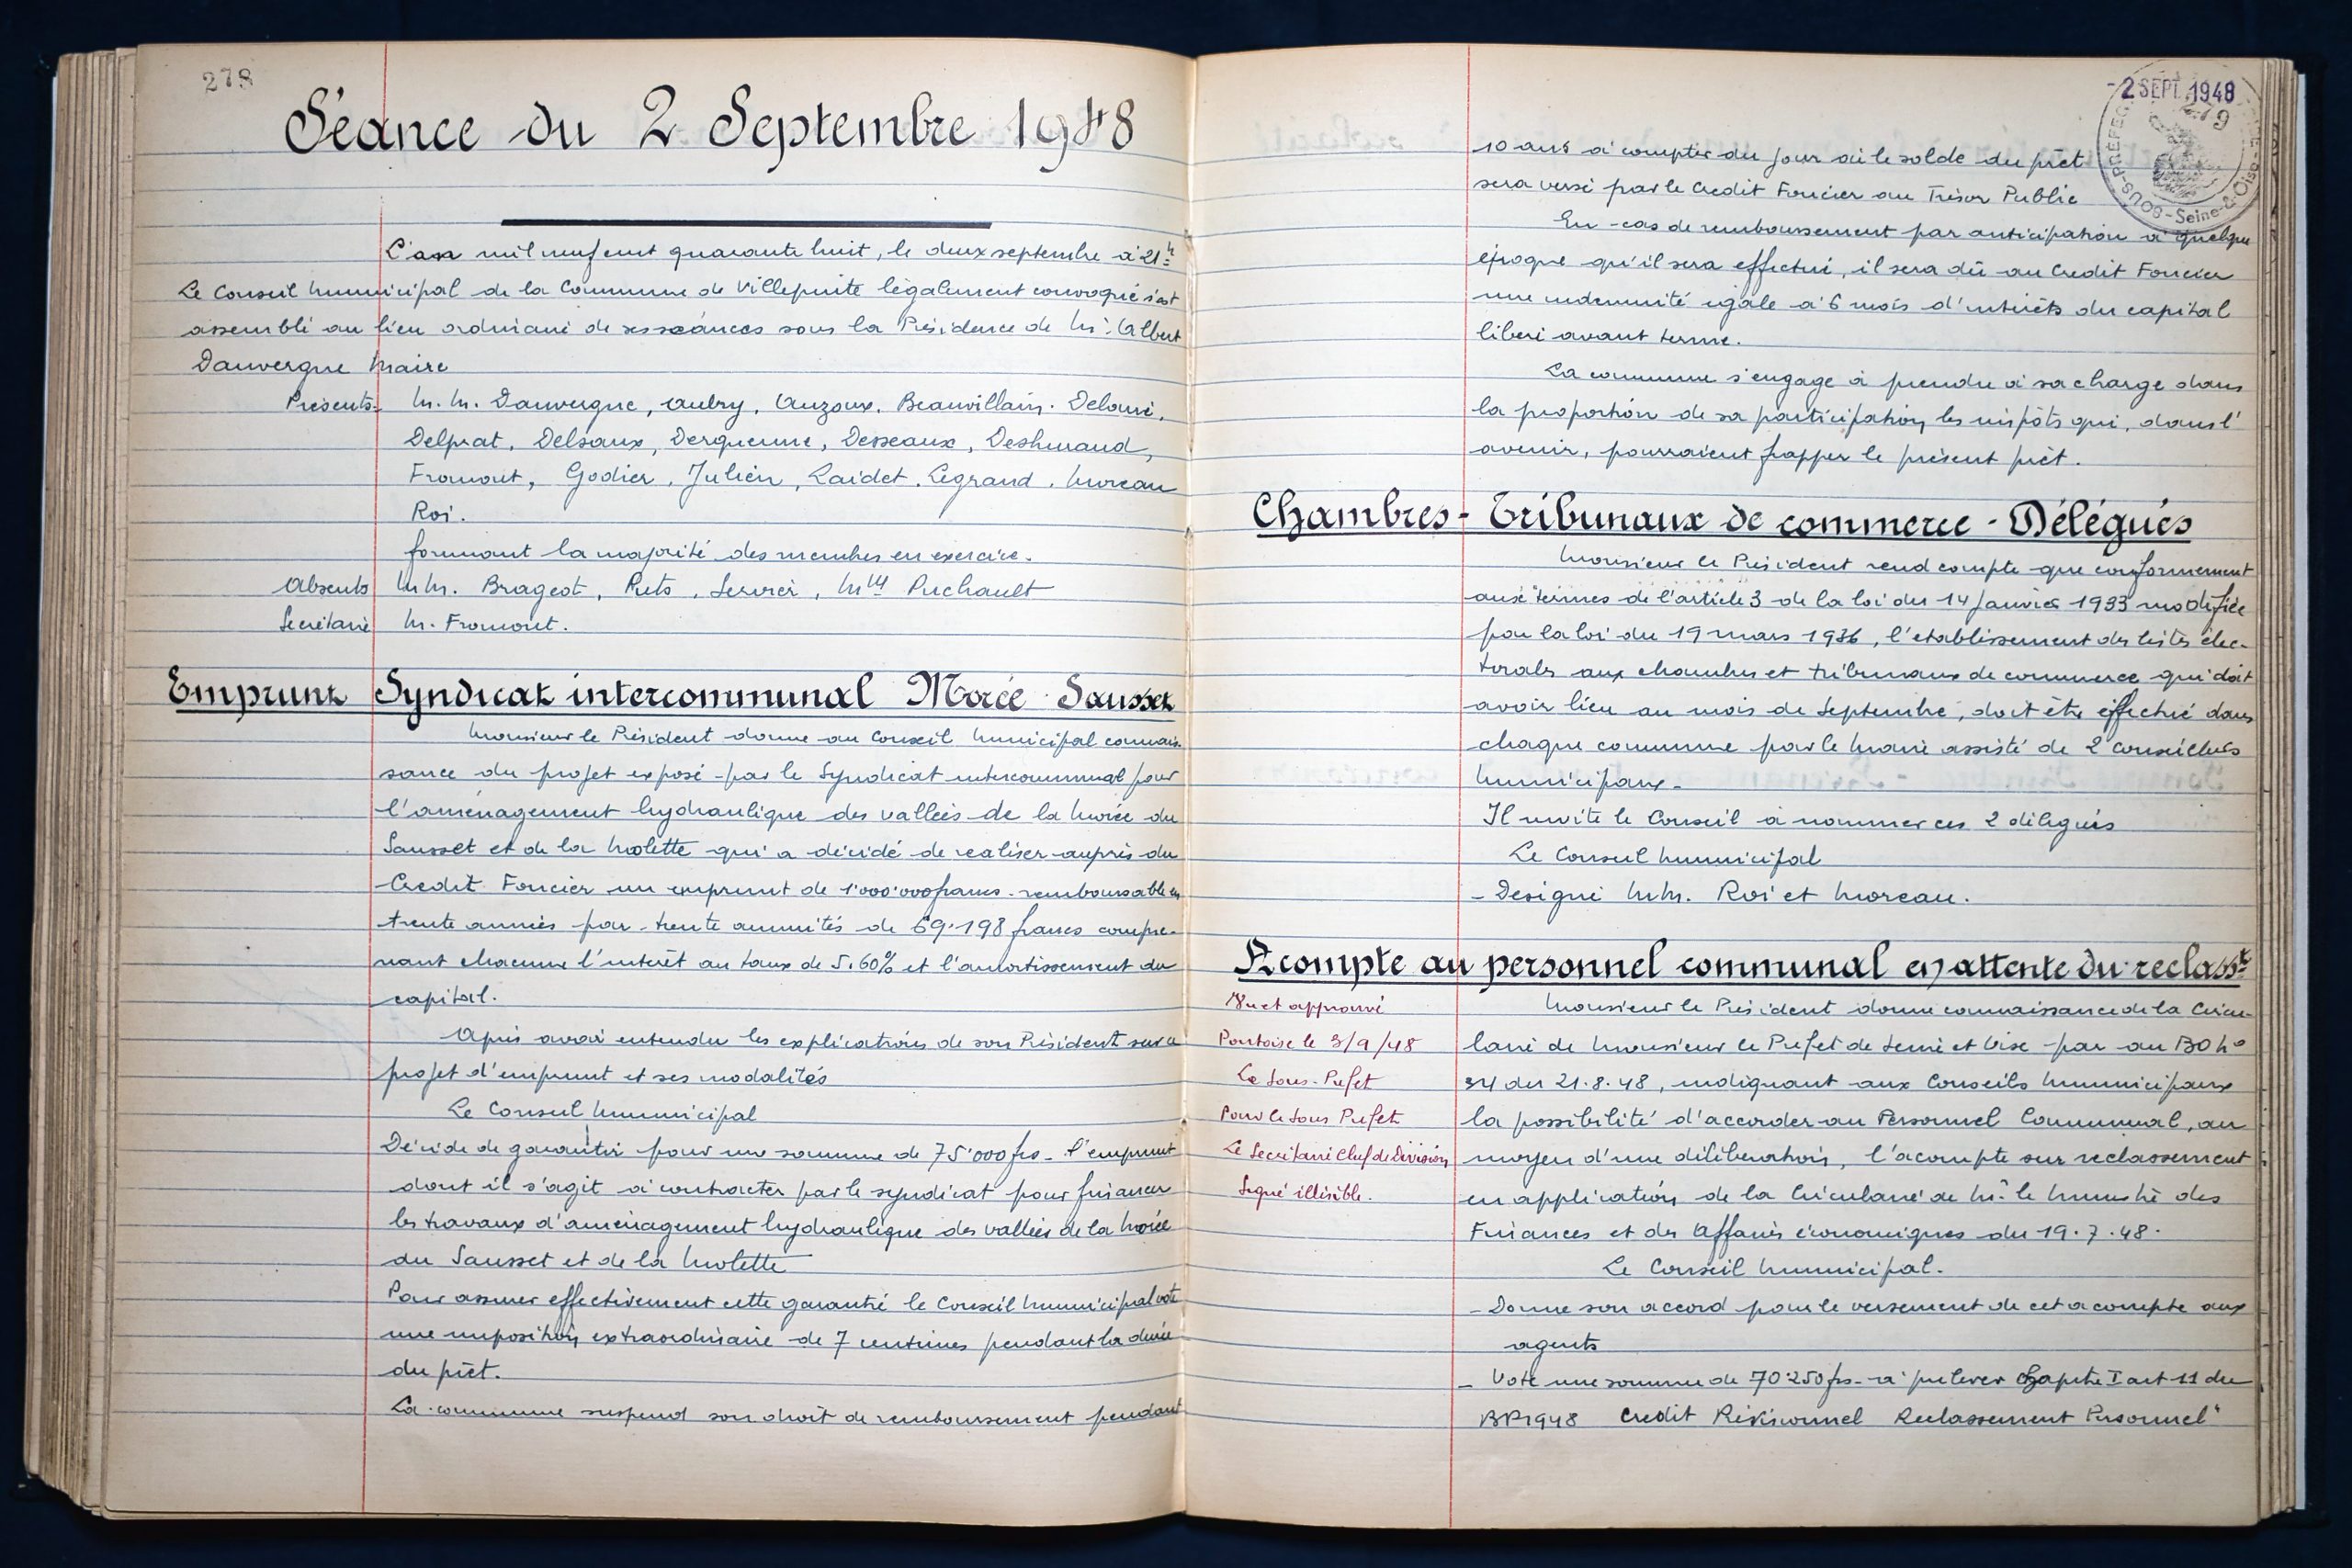 278
Séance du 2 Septembre 1948
L'an mil neuf cent quarante huit, le deux septembre à 21h
Le Conseil Municipal de la Commune de Villepinte légalement convoqué s'est
assemblé au lieu ordinaire de ses séances sous la Présidence de Mr. Albert
Dauvergne Maire
Présents M.M. Dauvergne, Aubry, Auzoux, Beauvillain. Delarré,
Delprat, Delsaux, Derquenne, Desseaux, Desmeraud,
Fromont, Godier, Julien, Laidet, Legrand, Moreau
Roi.
formant la majorité des membres en exercice.
Absents MM. Brageot, Ruts, Servier, Mlle Puchault
Secrétaire M. Fromont.
Emprunt Syndicat intercommunal Morée - Sausset
Monsieur le Président donne au Conseil Municipal connais-
sance du projet exposé par le Syndicat intercommunal pour
l'aménagement hydraulique des vallées de la Morée du
Sausset et de la Molette qui a décidé de réaliser auprès du
Credit Foncier un emprunt de 1.000.000 francs remboursable en
trente années par trente annuités de 69.198 francs compre-
nant chacune l'intérêt au taux de 5.60% et l'amortissement du
capital.
Après avoir entendu les explications de son Président sur ce
projet d'emprunt et ses modalités
Le Conseil Municipal
Décide de garantir pour une somme de 75.000 frs l'emprunt
dont il s'agit à contracter par le syndicat pour financer
les travaux d'aménagement hydraulique des vallées de la Morée
du Sausset et de la Molette
Pour assurer effectivement cette garantie le Conseil Municipal vote
une imposition extraordinaire de 7 centimes pendant la durée
du prêt.
La commune suspend son droit de remboursement pendant
- 2 SEPT. 1948
279
SOUS-PREFEC
Seine-&-Oise
10 ans à compter du jour où le solde du prêt
sera versé par le Credit Foncier au Trésor Public
En cas de remboursement par anticipation à quelque
époque qu'il sera effectué, il sera dû au Credit Foncier
une indemnité égale à 6 mois d'intérêts du capital
libéré avant terme.
La commune s'engage à prendre à sa charge dans
la proportion de sa participation les impôts qui, dans l'
avenir, pourraient frapper le présent prêt.
Chambres - Tribunaux de commerce - Délégués
Monsieur le Président rend compte que conformement
aux termes de l'article 3 de la loi du 14 Janvier 1933 modifiée
par la loi du 19 mars 1936, l'établissement des listes élec-
torales aux chambres et tribunaux de commerce qui doit
avoir lieu au mois de Septembre, doit être effectué dans
chaque commune par le Maire assisté de 2 conseillers
Municipaux.
Il invite le Conseil à nommer ces 2 délégués
Le Conseil Municipal
- Désigne MM. Roi et Moreau.
Acompte au personnel communal en attente du reclasst
Monsieur le Président donne connaissance de la Circu-
laire de Monsieur le Préfet de Seine et Oise par au BO No
34 du 21.8.48, indiquant aux Conseils Municipaux
la possibilité d'accorder au Personnel Communal, au
moyen d'une délibération, l'acompte sur reclassement
en application de la Circulaire de Mr. le Ministre des
Finances et des Affaires économiques du 19.7.48.
Le Conseil Municipal.
- Donne son accord pour le versement de cet acompte aux
agents
- Vote une somme de 70.250 frs à prélever Chapitre I art 11 du
BP1948 Credit Révisionnel Reclassement Personnel"
Vu et approuvé
Pontoise le 3/9/48
Le Sous-Préfet
Pour le Sous Préfet
Le Secrétaire Chef de Division
Signé illisible.